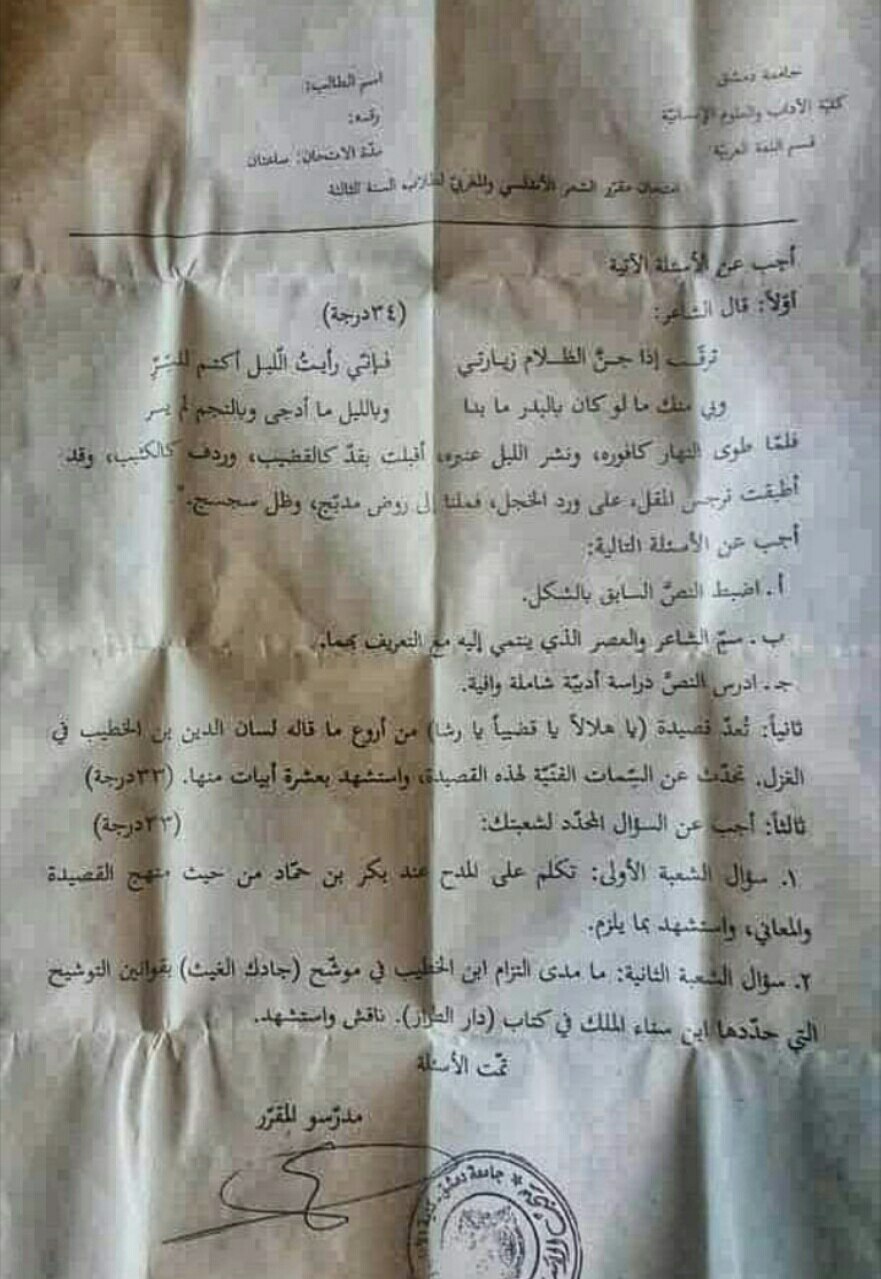 جامعة دمشق
كلية الآداب والعلوم الإنسانيّة
قسم اللغة العربيّة
اسم الطالب:
رقمه:
مدّة الامتحان: ساعتان
امتحان مقرّر الشعر الأندلسي والمغربيّ لطلاب السنة الثالثة
أجب عن الأسئلة الآتية
أوّلاً: قال الشاعر: (٣٤درجة)
ترقّب إذا جنَّ الظلام زيارتي فإنّي رأيتُ الّليل أكتم للسّرِّ
وبي منك ما لو كان بالبدر ما بدا وبالليل ما أدجى وبالنجم لم يسر
فلمّا طوى النهار كافوره، ونشر الليل عنبره، أقبلت بقدّ كالقضيب، وردف كالكثيب، وقد
أطبقت نرجس المقل، على ورد الخجل، فملنا إلى روض مدبّج، وظل سجسج."
أجب عن الأسئلة التالية:
أ. اضبط النصَّ السابق بالشكل.
ب. سمّ الشاعر والعصر الذي ينتمي إليه مع التعريف بهما.
جـ. ادرس النصَّ دراسة أدبيّة شاملة وافية.
ثانياً: تُعدّ قصيدة (يا هلالاً يا قضيباً يا رشا) من أروع ما قاله لسان الدين بن الخطيب في
الغزل. تحدّث عن السّمات الفنّيّة لهذه القصيدة، واستشهد بعشرة أبيات منها. (٣٣درجة)
ثالثاً: أجب عن السؤال المحدّد لشعبتك: (٣٣درجة)
١. سؤال الشعبة الأولى: تكلم على المدح عند بكر بن حمّاد من حيث منهج القصيدة
والمعاني، واستشهد بما يلزم.
٢. سؤال الشعبة الثانية: ما مدى التزام ابن الخطيب في موشّح (جادك الغيث) بقوانين التوشيح
التي حدّدها ابن سناء الملك في كتاب (دار الطراز). ناقش واستشهد.
تمّت الأسئلة
مدرّسو المقرّر
جامعة دمشق